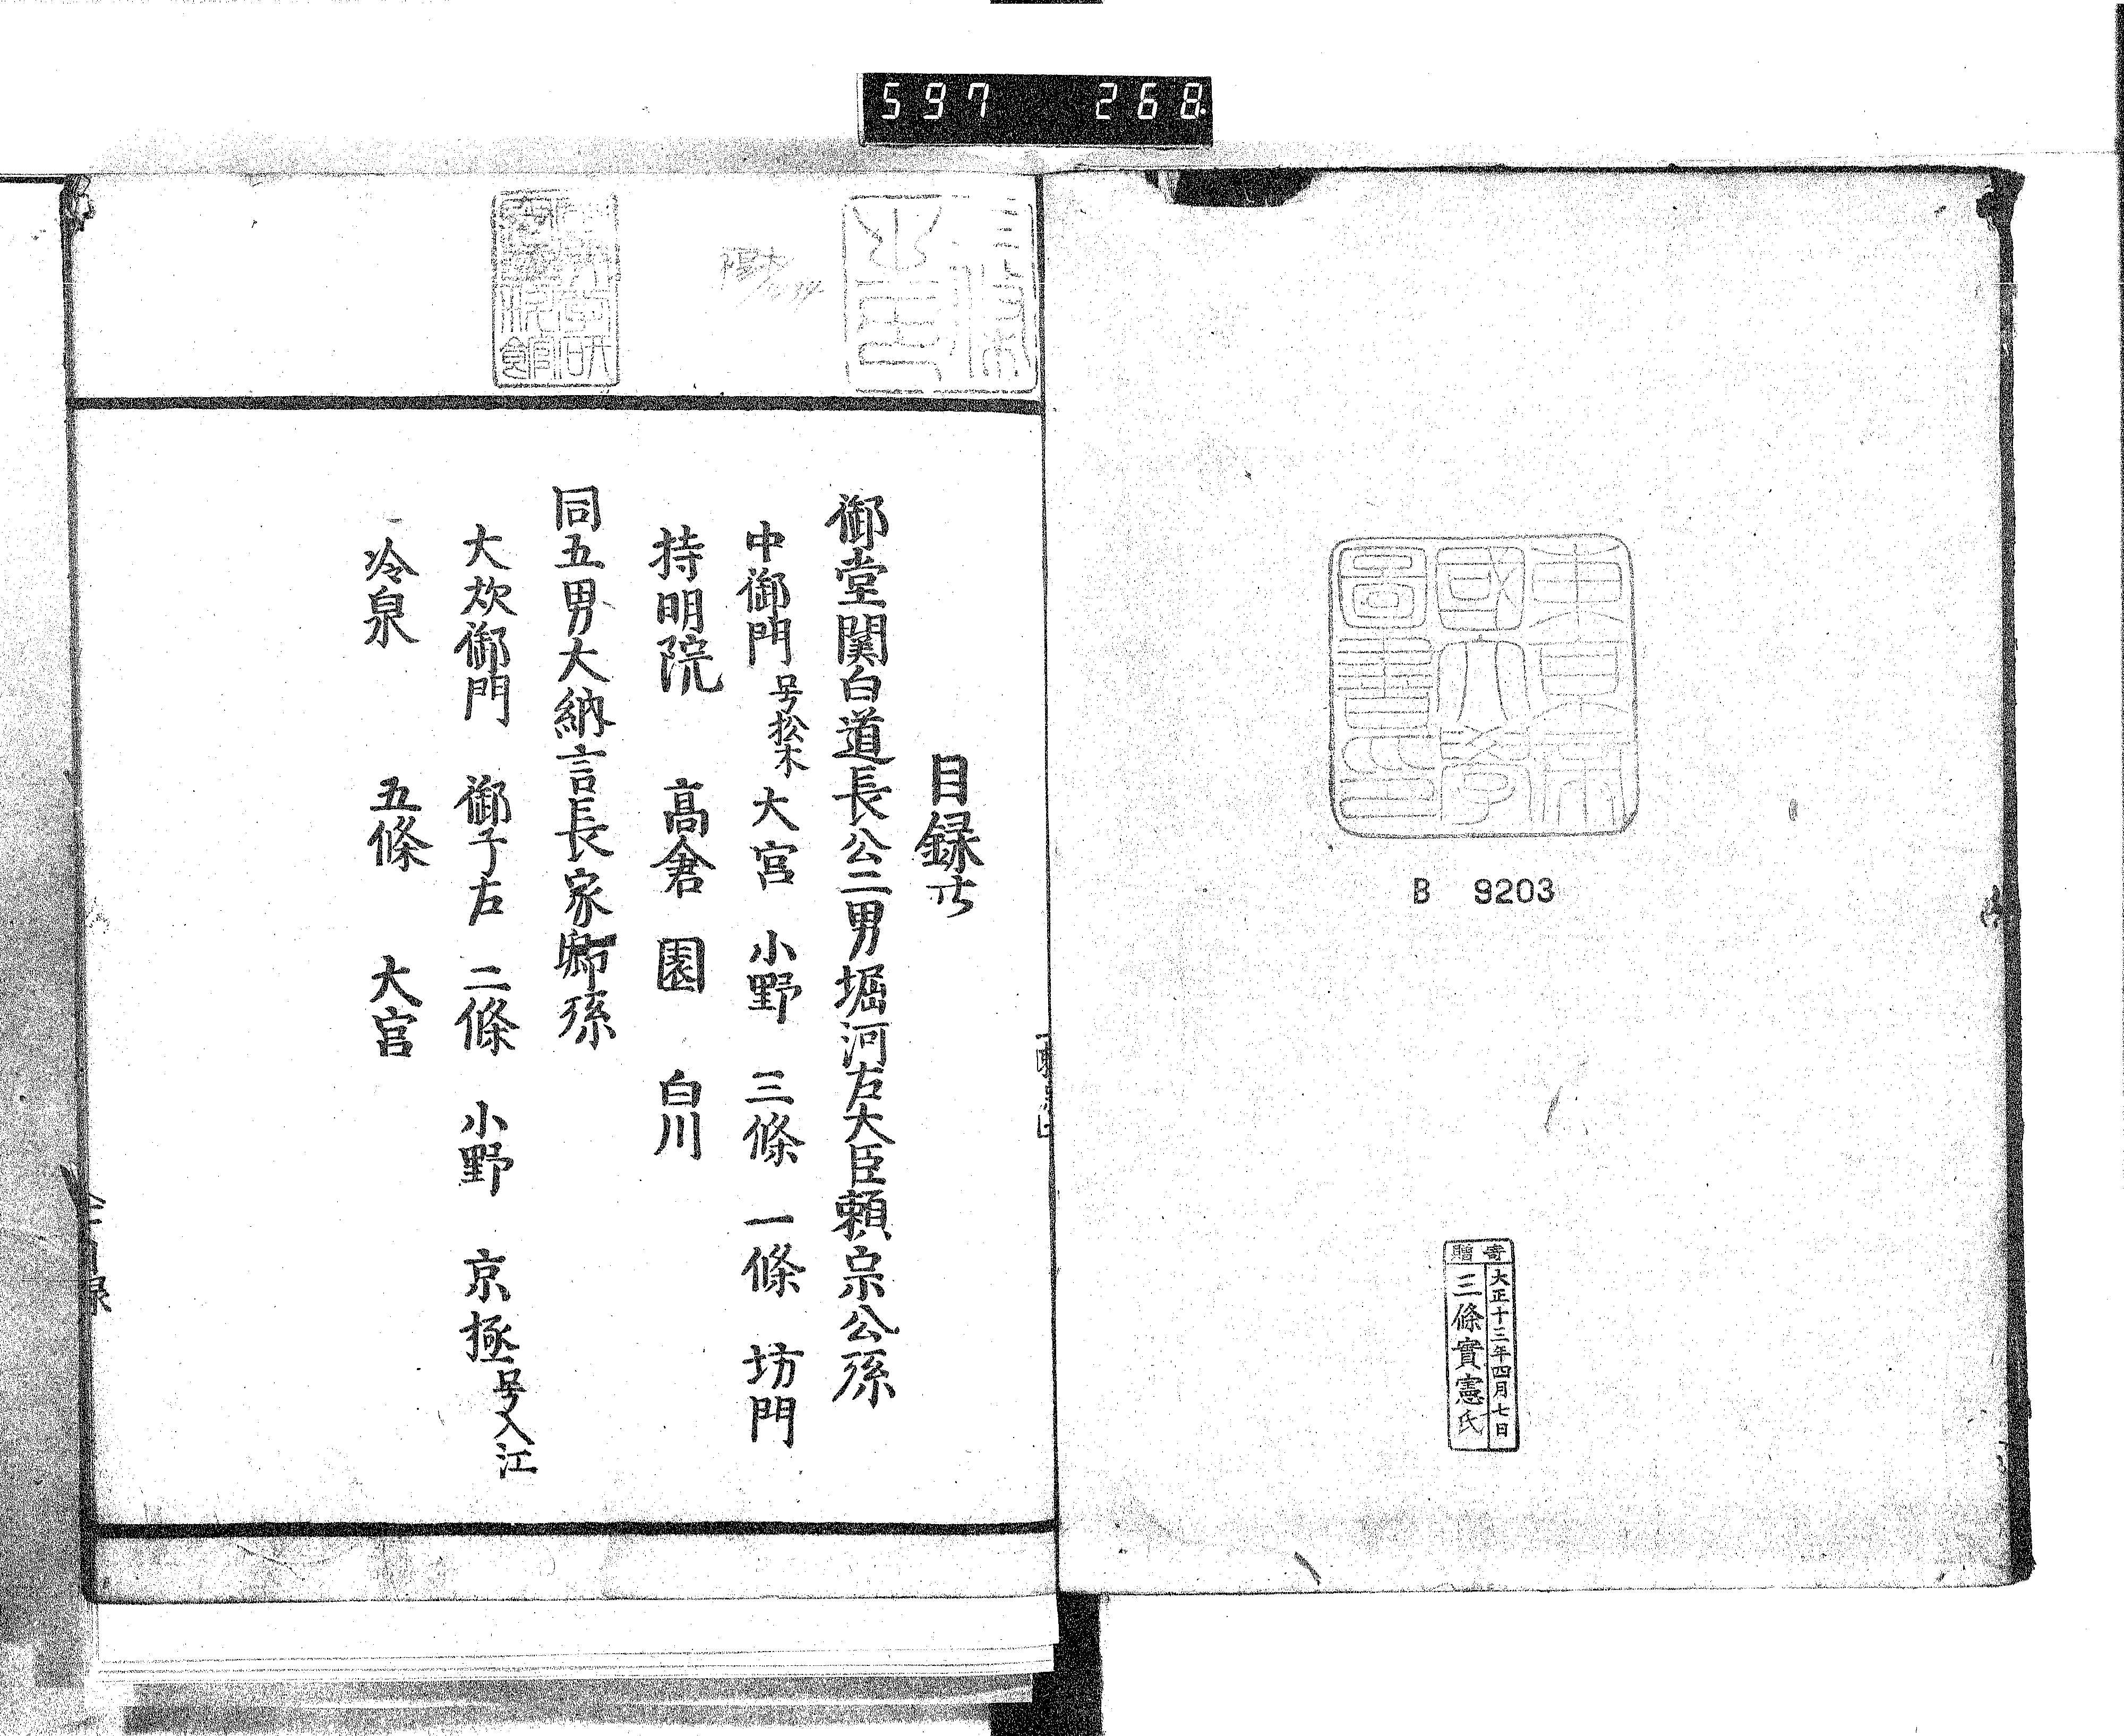 597 268
東京帝
國大學
圖書印
B 9203
寄贈
大正十三年四月七日
三條實憲氏
三條
目録廿
御堂関白道長公二男堀河右大臣頼宗公孫
中御門 号松木 大宮 小野 三條 一條 坊門
持明院 高倉 園 白川
同五男大納言長家卿孫
大炊御門 御子左 二條 小野 京極 号入江
冷泉 五條 大宮